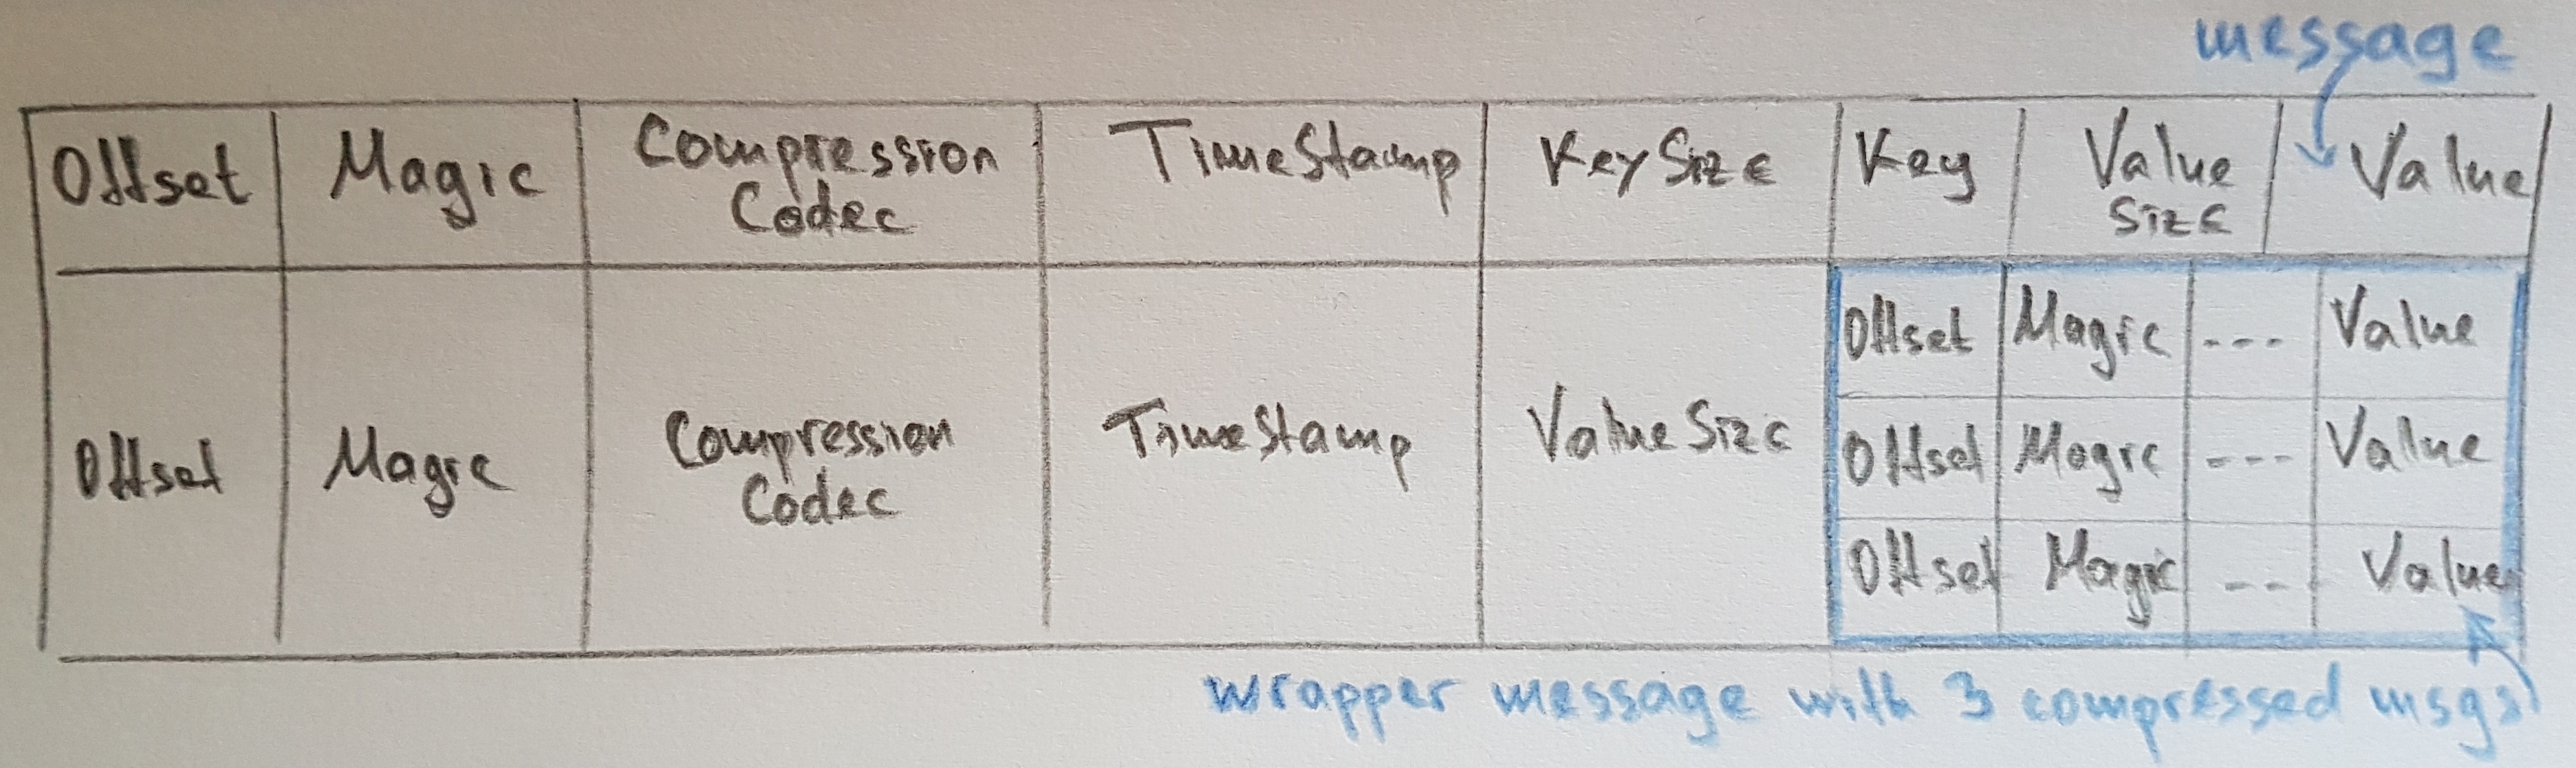 message
Offset Magic Compression Codec TimeStamp KeySize Key Value Size Value
Offset Magic Compression Codec TimeStamp ValueSize
Offset Magic --- Value
Offset Magic --- Value
Offset Magic --- Value
wrapper message with 3 compressed msgs